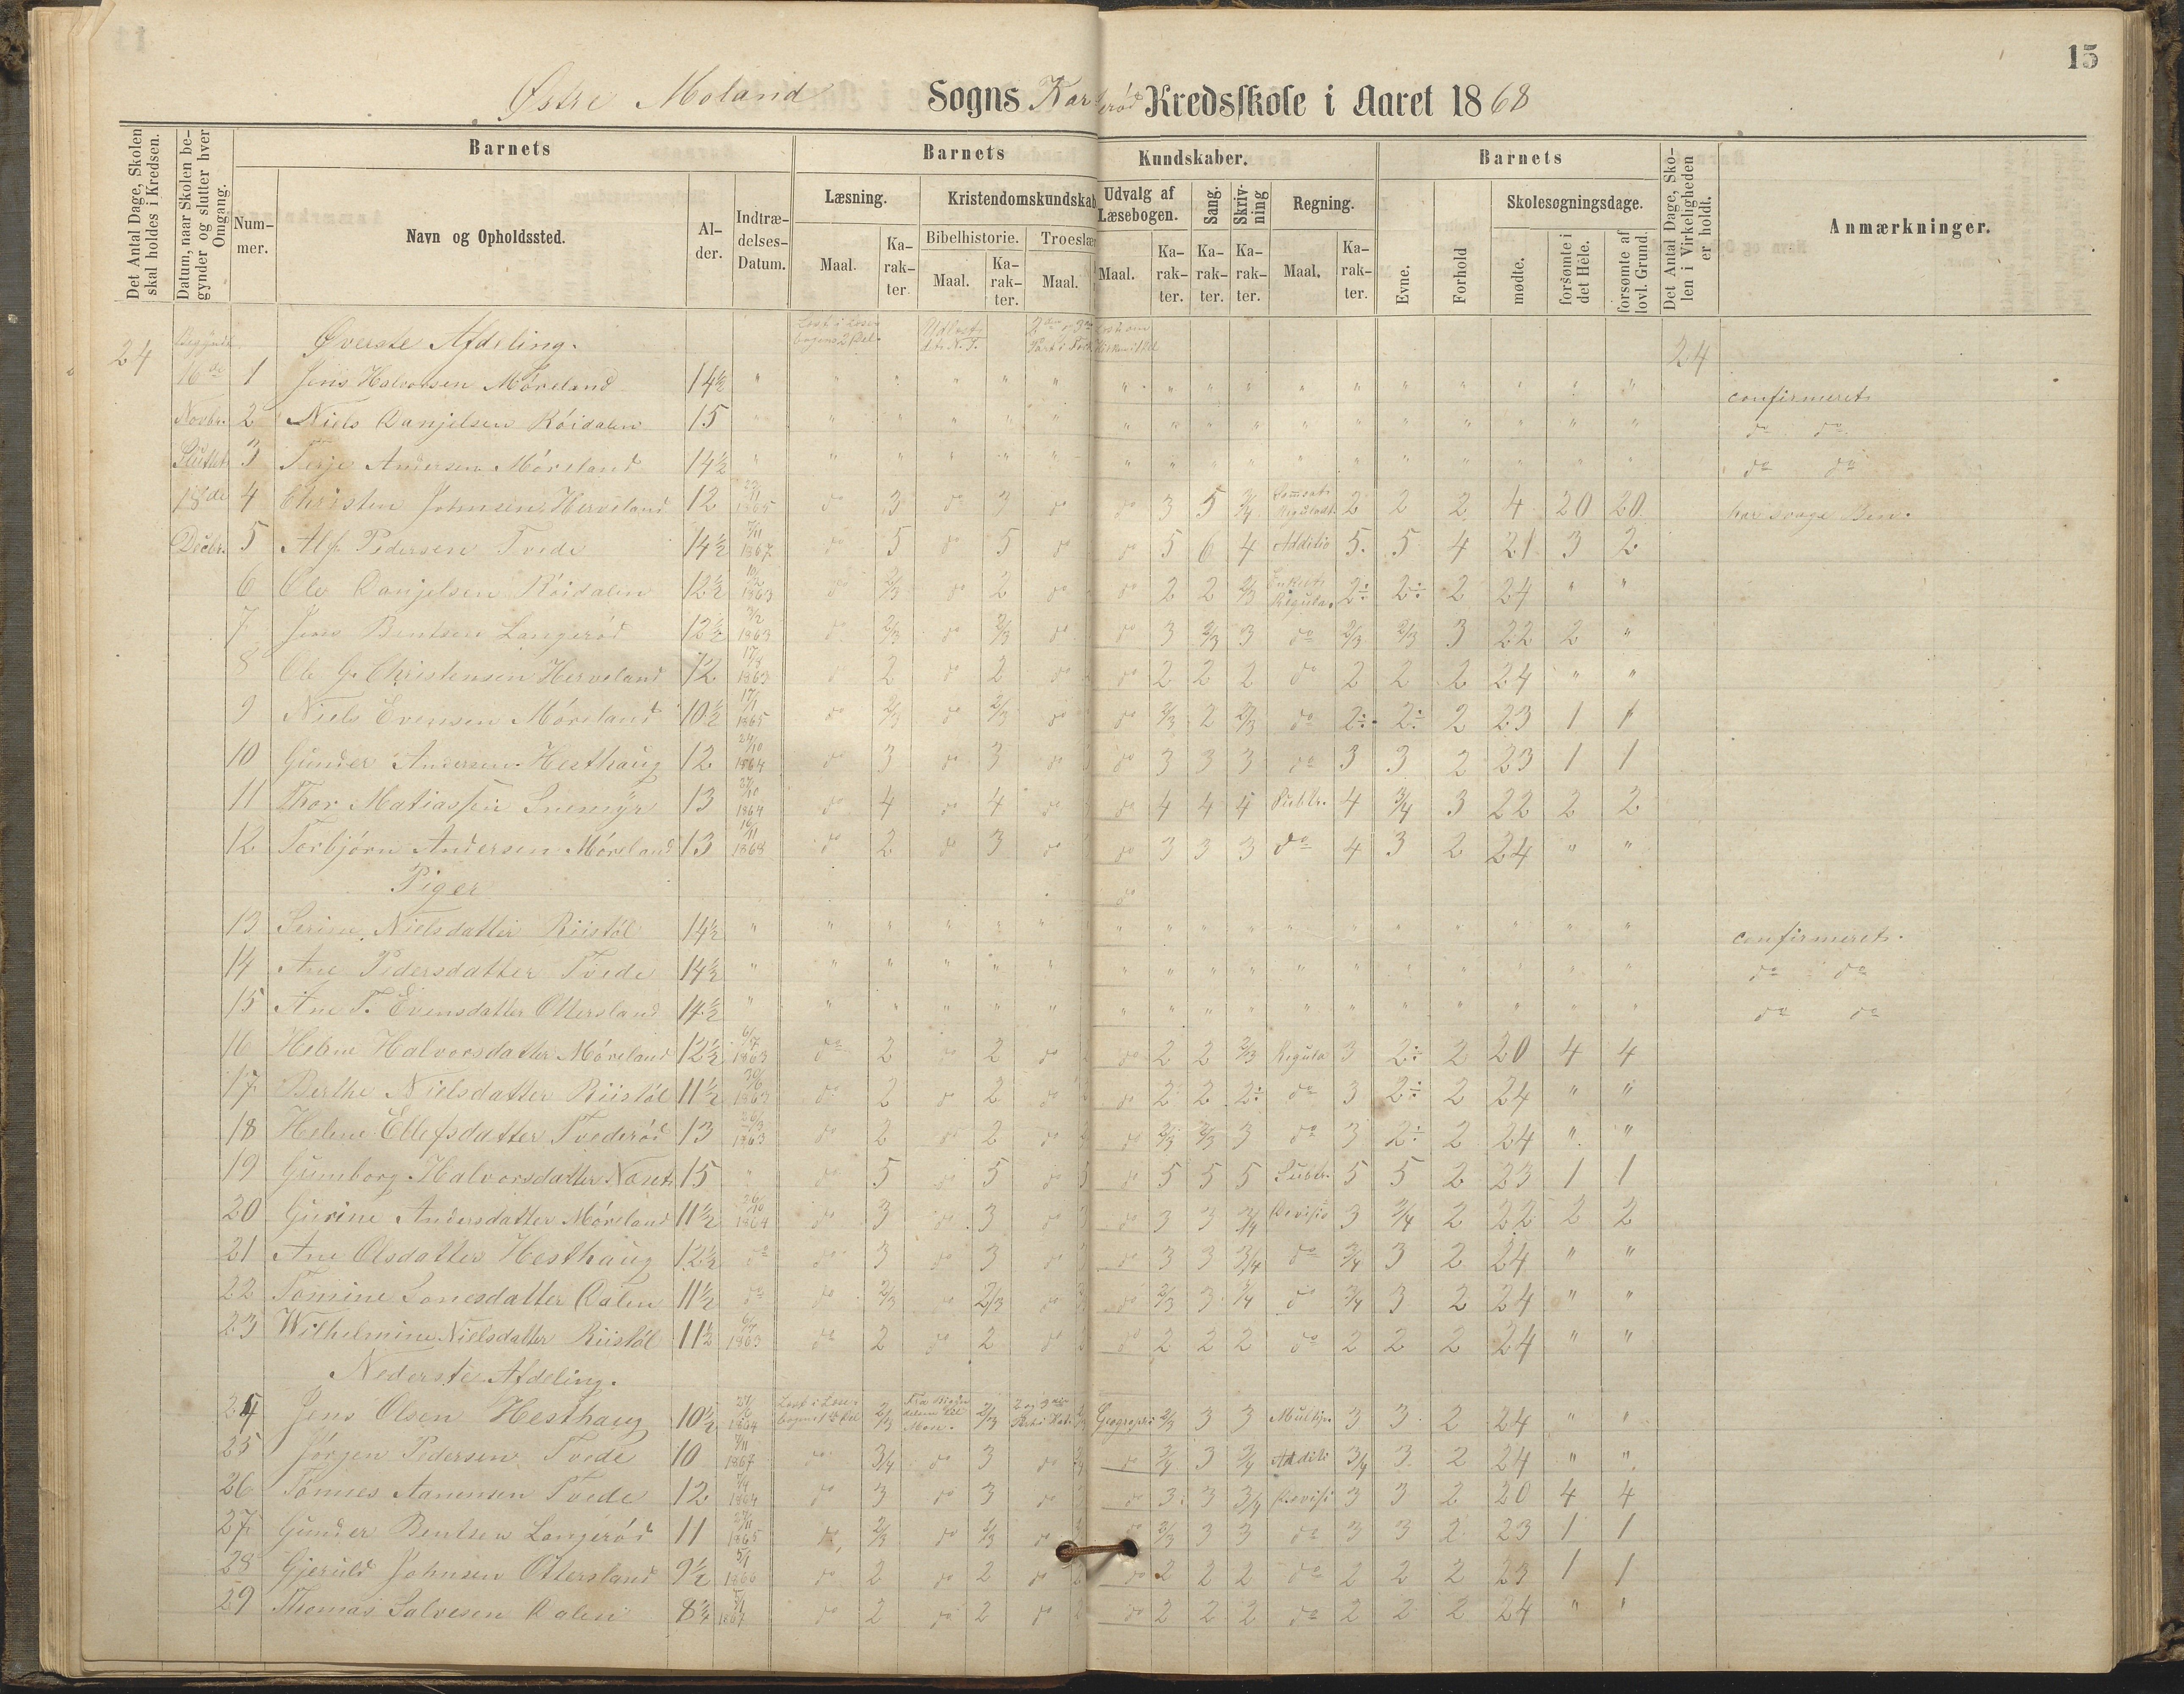 15
Østre Moland Sogns Kar rød Kredsskole i Aaret 1868
Det Antal Dage, Skolen skal holdes i Kredsen.
Datum, naar Skolen begynder og slutter hver Omgang.
Barnets
Barnets Kundskaber.
Barnets
Det Antal Dage, Skolen i Virkeligheden er holdt.
Anmærkninger.
Nummer.
Navn og Opholdssted.
Alder.
Indtrædelses-Datum.
Læsning.
Kristendomskundskab
Udvalg af Læsebogen.
Sang.
Skrivning
Regning.
Evne.
Forhold
Skolesøgningsdage.
Bibelhistorie.
Troeslær
Maal.
Karakter.
Maal.
Karakter.
Maal.
Maal.
Karakter.
Karakter.
Karakter.
Maal.
Karakter.
mødte.
forsømte i det Hele.
forsømte af lovl. Grund.
24 Øverste Afdeling. 24
16de 1 Jens Halvorsen Møreland 14½ " " " " " " " " " " " " " " " " " confirmeret
Novbr. 2 Niels Danjelsen Röidalen 15 " " " " " " " " " " " " " " " " " do do
Sluttet 3 Terje Andersen Møreland 14½ " " " " " " " " " " " " " " " " " do do
18de 4 Christen Johnsen Herveland 12 1865 do 3 do 3 do do 3 5 3/4 2 2 2 4 20 20 har svage Ben.
Decbr. 5 Alf Pedersen Tvede 14½ 7/11 1867 do 5 do 5 do do 5 6 4 Additio 5. 5 4 21 3 2
6 Ole Danjelsen Röidalen 12½ 1863 do 2/3 do 2 do do 2 2 2/3 Regula. 2÷ 2÷ 2 24 " "
7 Jens Bentsen Langerød 12½ 1863 do 2/3 do 2/3 do do 3 2/3 3 do 2/3 2/3 3 22 2 "
8 Ole G. Christensen Herveland 12 1863 do 2 do 2 do do 2 2 2 do 2 2 2 24 " "
9 Niels Evensen Møreland 10½ 1865 do 2/3 do 2/3 do do 2/3 2 2/3 do 2÷ 2÷ 2 23 1 1
10 Gunder Andersen Hesthaug 12 24/10 1864 do 3 do 3 do do 3 3 3 do 3 3 2 23 1 1
11 Thor Matiassen 13 1864 do 4 do 4 do do 4 4 4 Subtr. 4 3/4 3 22 2 2
12 Torbjörn Andersen Møreland 13 16/11 1868 do 2 do 3 do do 3 3 3 do 4 3 2 24 " "
Piger do
13 Serine Nielsdatter Riistöl 14½ " " " " " " " " " " " " " " " " " confirmeret.
14 Ane Pedersdatter Tvede 14½ " " " " " " " " " " " " " " " " " do do
15 Ane T. Evensdatter Ottersland 14½ " " " " " " " " " " " " " " " " " do do
16 Helene Halvorsdatter Møreland 12½ 6/7 1863 do 2 do 2 do do 2 2 2/3 Regula 3 2÷ 2 20 4 4
17 Berthe Nielsdatter Riistöl 11½ 1863 do 2 do 2 do do 2 2 2÷ do 3 2÷ 2 24 " "
18 Helene Ellefsdatter Tvederød 13 1863 do 2 do 2 do do 2/3 2/3 3 do 3 2÷ 2 24 " "
19 Gumborg Halvorsdatter 15 " do 5 do 5 do 5 do 5 5 5 Subtr. 5 5 2 23 1 1
20 Gurine Andersdatter Møreland 11½ 26/10 1864 do 3 do 3 do 3 do 3 3 3/4 Divisio 3 3/4 2 22 2 2
21 Ane Olsdatter Hesthaug 12½ do do 3 do 3 do do 3 3 3/4 do 3/4 3 2 24 " "
22 Tomine Lonesdatter Dalen 11½ do do 2/3 do 2/3 do do 2/3 3 3/4 do 3/4 3 2 24 " "
23 Wilhelmine Nielsdatter Riistöl 11½ 6/7 1863 do 2 do 2 do do 2 2 2 do 2 2 2 24 " "
Nederste Afdeling.
24 Jens Olsen Hesthaug 10½ 1864 Læst i Læsebogens 1ste Del 2/3 2/3 Geographi 2/3 3 3 Multip. 3 3 2 24 " "
25 Jörgen Pedersen Tvede 10 7/11 1867 do 3/4 do 3 do do 3/4 3 3/4 Additi 3/4 3 2 24 " "
26 Tönnes Aanensen Tvede 12 1864 do 3 do 3 do do 3 3 3/4 Divisi 3 3 2 20 4 4
27 Gunder Bentsen Langerød 11 1865 do 2/3 do 2/3 do do 2/3 3 3 do 3 3 2 23 1 1
28 Gjeruld Johnsen Ottersland 9½ 5/1 1866 do 2 do 2 do 2 do 2 2 2 do 2 2 2 23 1 1
29 Thomas Salvesen Dalen 8½ 1867 do 2 do 2 do 2 do 2 2 2 do 2 2 2 24 " "